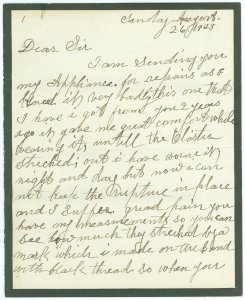 1
Sunday August
26/1903
Dear Sir
I am Sending you
my Appliance for repairs as I
need it very badly this one that
I have i got from you 2 years
ago it gave me great comfort while
wearing it, untill the Elastic
streched; out i have worn it
night and day but now i can
not keep the Rupture in place
and I suffer great pain you
have my measurements so you can
see how much they streched by a
mark which i made on the band
with black thread so when you